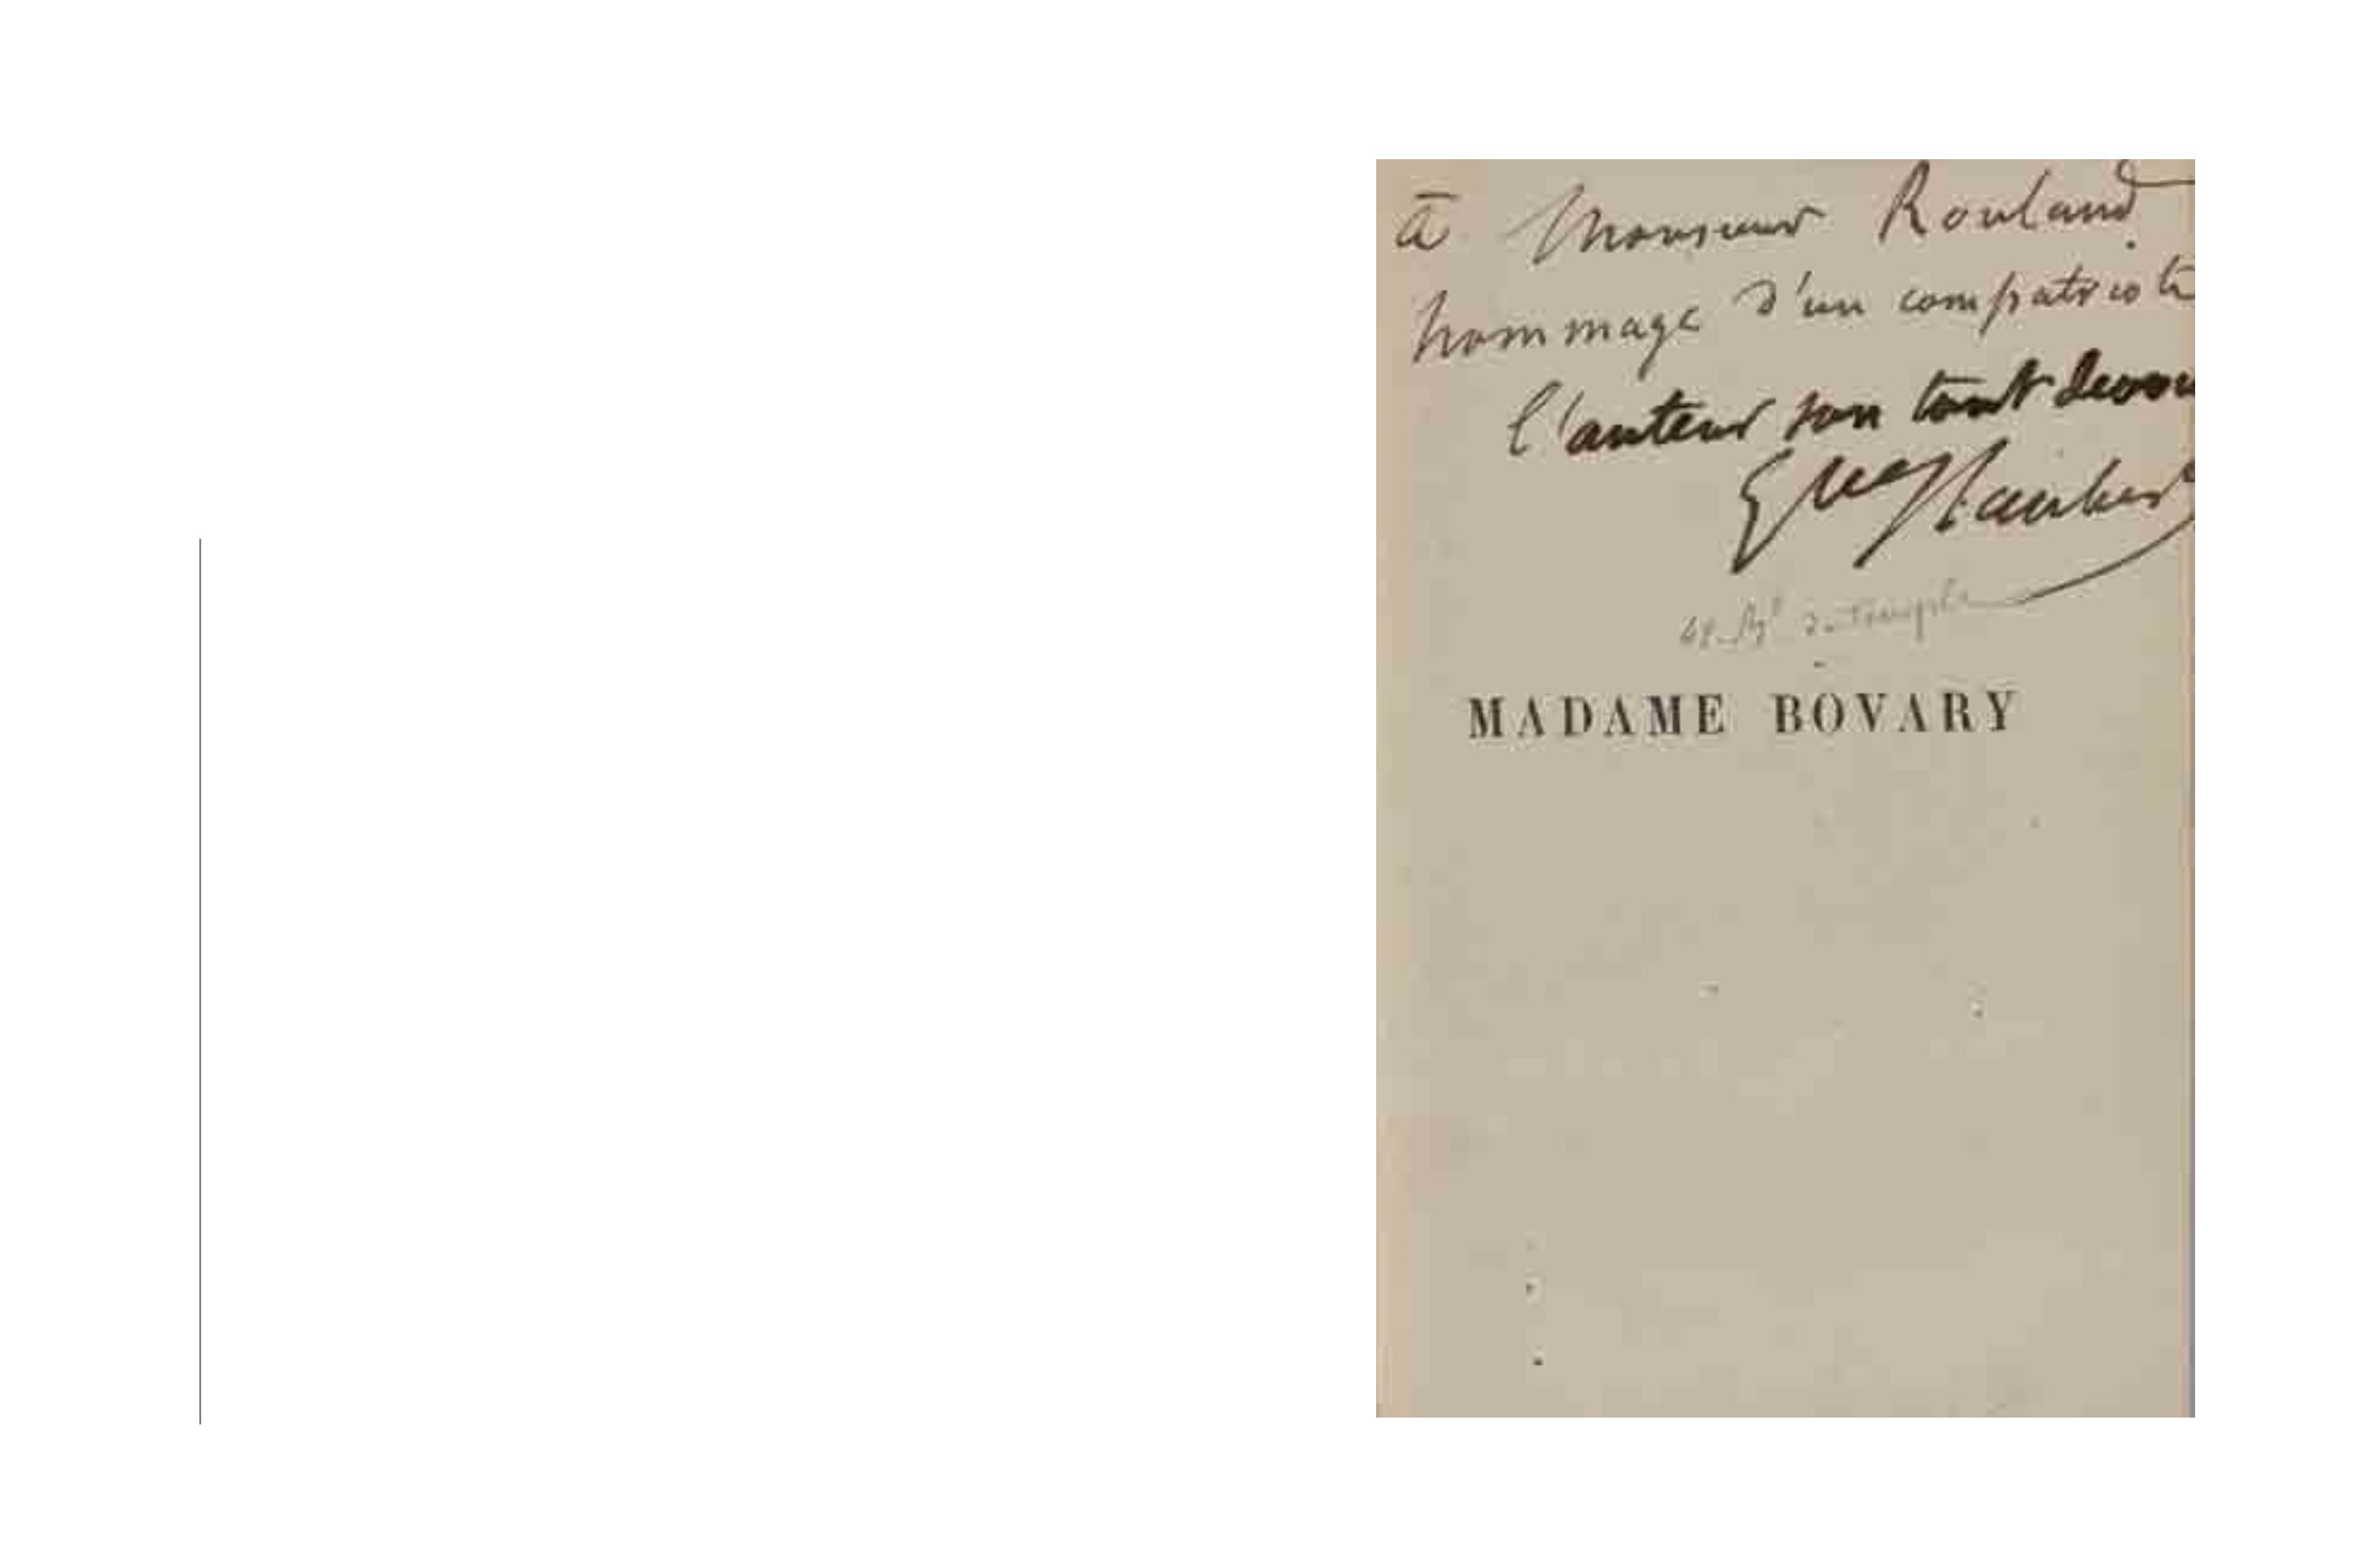 à Monsieur Rouland.
hommage d'un compatriote
l'auteur son tout dévoué
Gve Flaubert
42 Bd du Temple
MADAME BOVARY